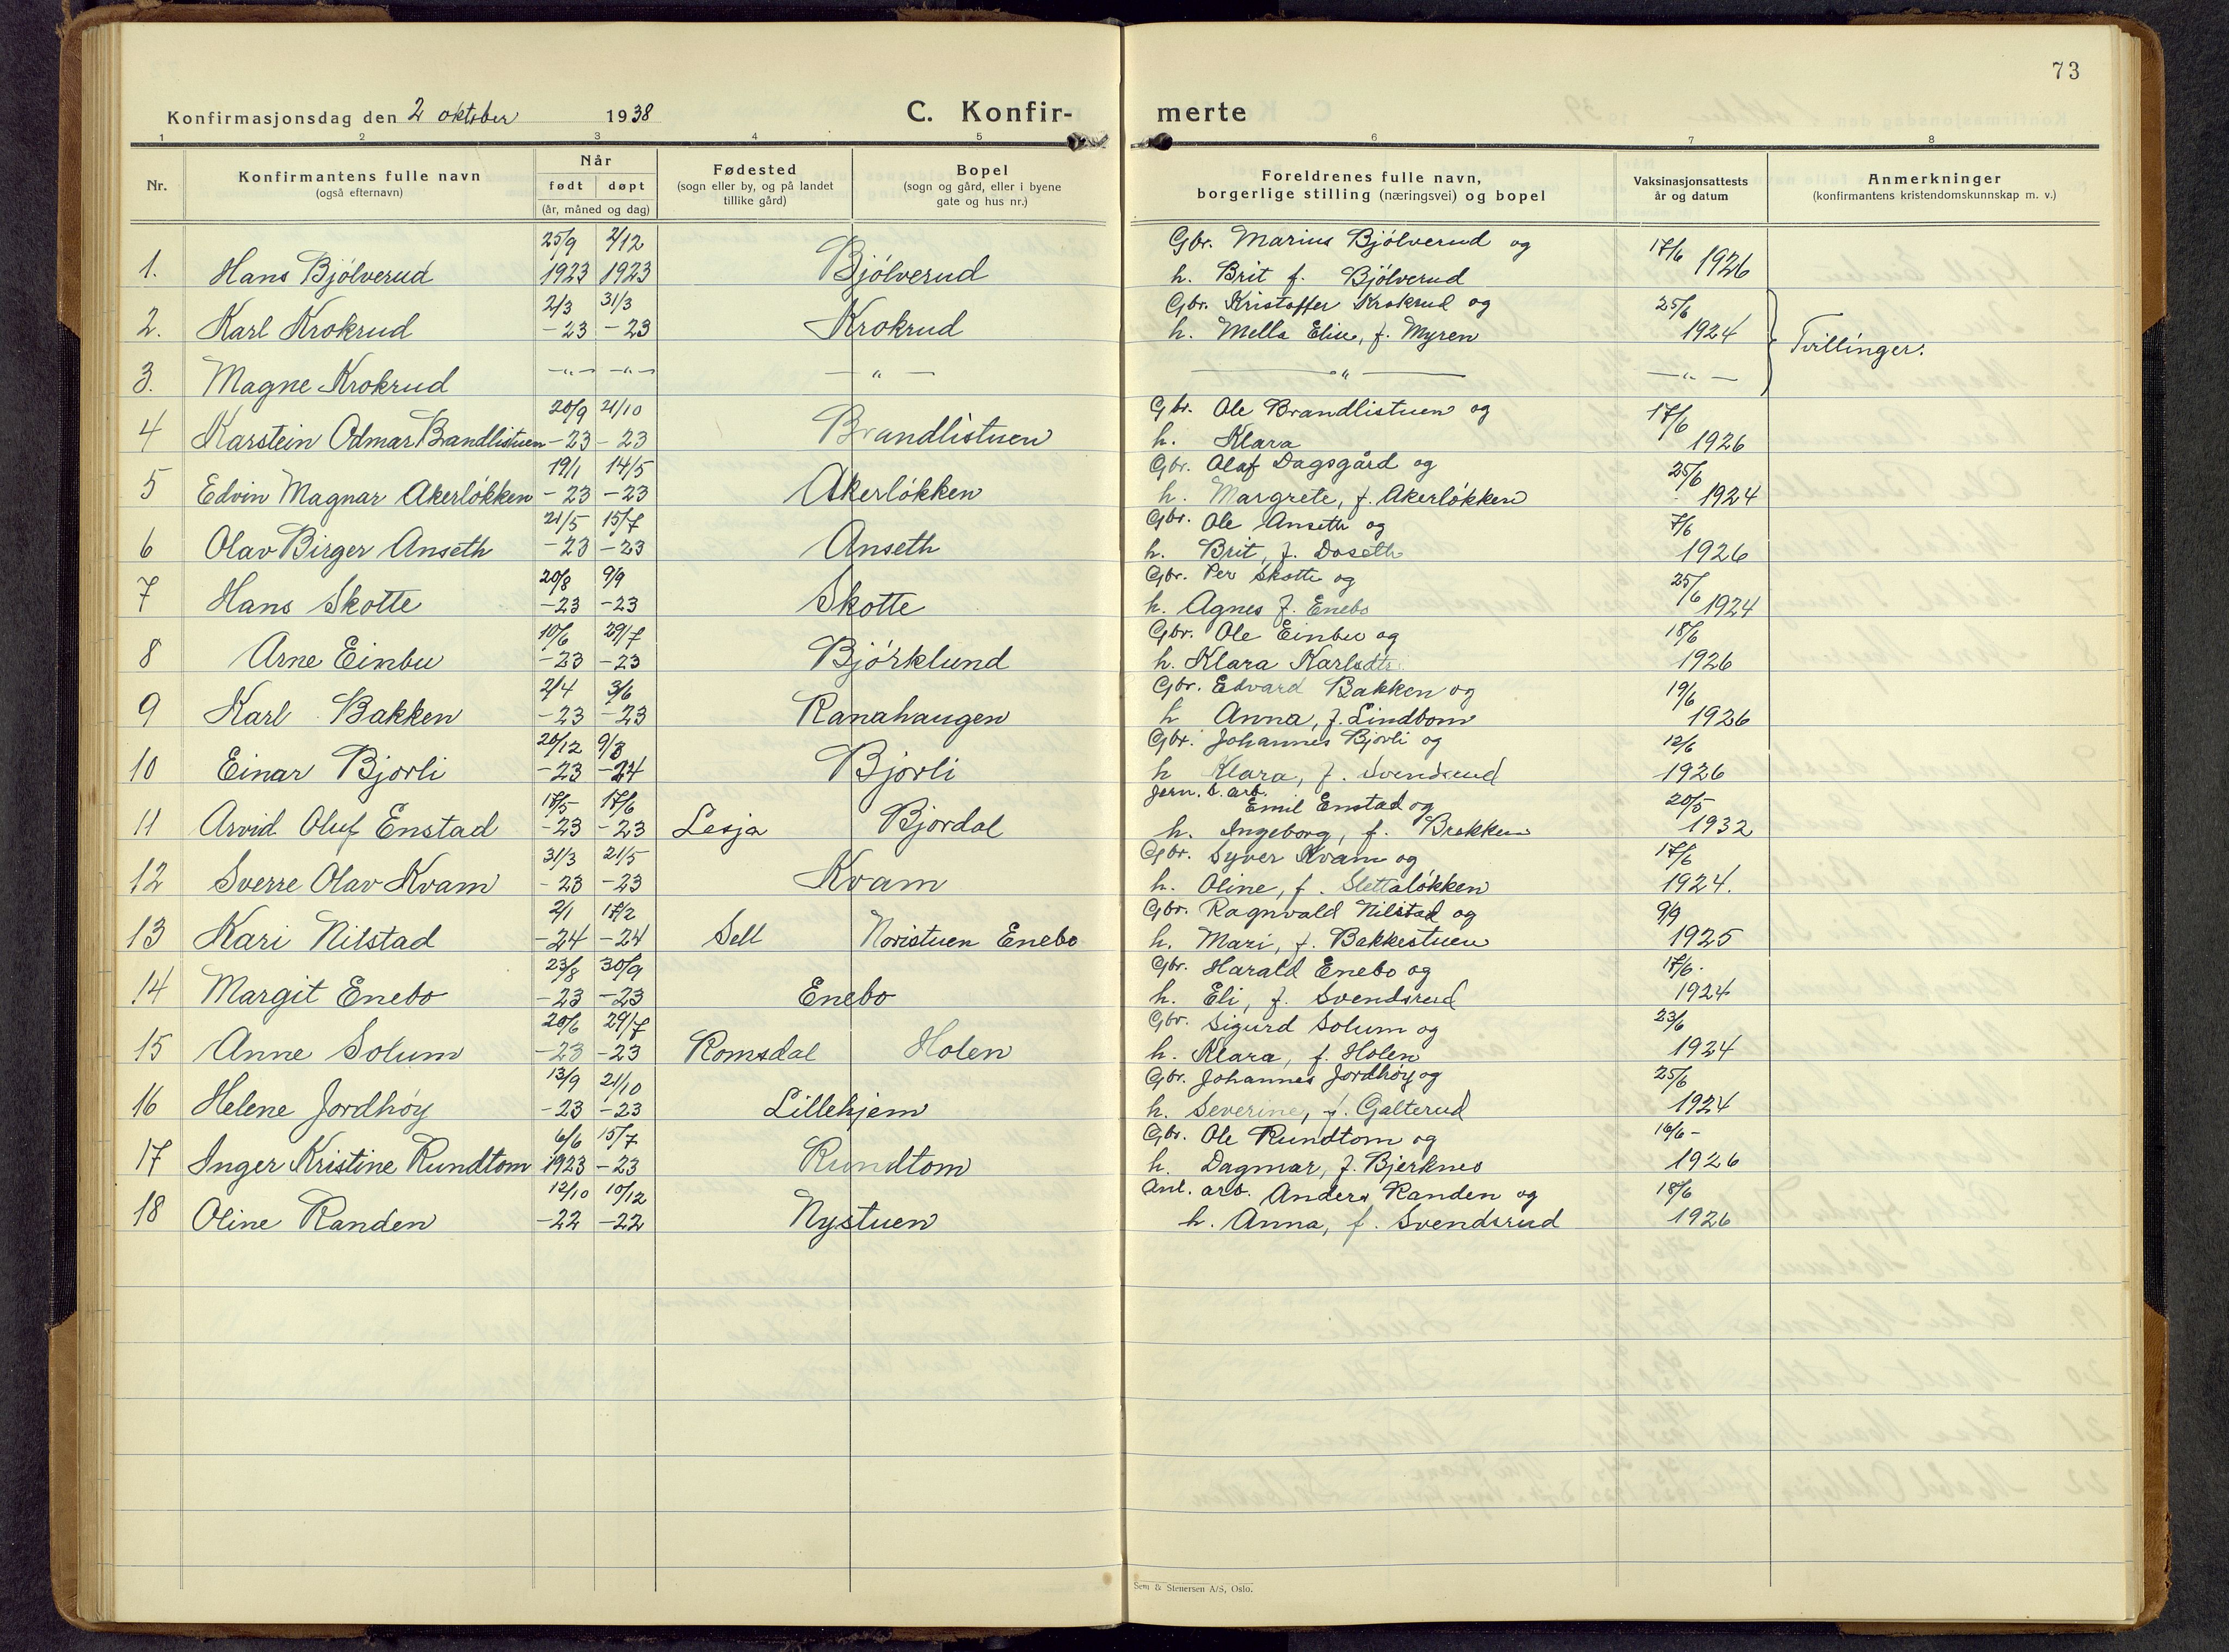 73
Konfirmasjonsdag den 2 oktober 1938 C. Konfir- merte
1 2 3 4 5 6 7 8
Nr. Konfirmantens fulle navn (også efternavn) Når født døpt (år, måned og dag) Fødested (sogn eller by, og på landet tillike gård) Bopel (sogn og gård, eller i byene gate og hus nr.) Foreldrenes fulle navn, borgerlige stilling (næringsvei) og bopel Vaksinasjonsattests år og datum Anmerkninger (konfirmantens kristendomskunnskap m. v.)
25/9 2/12 Gbr. Marius Bjölverud og 17/6
1. Hans Bjölverud 1923 1923 Bjölverud h. Brit f. Bjölverud 1926
2/3 31/3 Gbr. Kristoffer Krokrud og 25/6
2. Karl Krokrud -23 -23 Krokrud h. Mella Elise, f. Myren 1924 Tvillinger.
3. Magne Krokrud -"- -"- -"- -"- -"-
20/9 21/10 Gbr. Ole Brandlistuen og 17/6
4 Karstein Odmar Brandlistuen -23 -23 Brandlistuen h. Klara 1926
19/1 14/5 Gbr. Olaf Dagsgård og 25/6
5 Edvin Magnar Akerlökken -23 -23 Akerlökken h. Margrete, f. Akerlökken 1924
21/5 15/7 Gbr. Ole Anseth og 7/6
6 Olav Birger Anseth -23 -23 Anseth h. Brit, f. Doseth 1926
20/8 9/9 Gbr. Per Skotte og 25/6
7 Hans Skotte -23 -23 Skotte h. Agnes f. Enebo 1924
10/6 29/7 Gbr. Ole Einbu og 18/6
8 Arne Einbu -23 -23 Bjórklund h. Klara Karlsdtr. 1926
2/4 3/6 Gbr. Edvard Bakken og 19/6
9 Karl Bakken -23 -23 Ranahaugen h Anna, f. Lindbom 1926
20/12 9/3 Gbr. Johannes Bjorli og 12/6
10 Einar Bjorli -23 -24 Bjorli h Klara, f. Svendsrud 1926
17/5 17/6 Jern. b. arb. Emil Enstad og 20/5
11 Arvid Oluf Enstad -23 -23 Lesja Bjordal h. Ingeborg, f. Brekken 1932
31/3 21/5 Gbr. Syver Kvam og 17/6
12 Sverre Olav Kvam -23 -23 Kvam h. Oline, f. Slettalökken 1924.
2/1 17/2 Gbr. Ragnvald Nilstad og 9/9
13 Kari Nilstad -24 -24 Sell Noristuen Enebo h. Mari, f. Bakkestuen 1925
23/8 30/9 Gbr. Harald Enebo og 17/6.
14 Margit Enebo -23 -23 Enebo h. Eli, f. Svendsrud 1924
20/6 29/7 Gbr. Sigurd Solum og 23/6
15 Anne Solum -23 -23 Romsdal Holen h. Klara, f. Holen 1924
13/9 21/10 Gbr. Johannes Jordhöy og 25/6
16 Helene Jordhöy -23 -23 Lillehjem h. Severine, f. Galterud 1924
6/6 15/7 Gbr. Ole Rundtom og 16/6-
17 Inger Kristine Rundtom 1923 -23 Rundtom h. Dagmar, f. Bjerknes 1926
12/10 10/12 Anl. arb. Anders Randen og 18/6
18 Oline Randen -22 -22 Nystuen h. Anna, f. Svendsrud 1926
Sem & Stenersen A/S, Oslo.